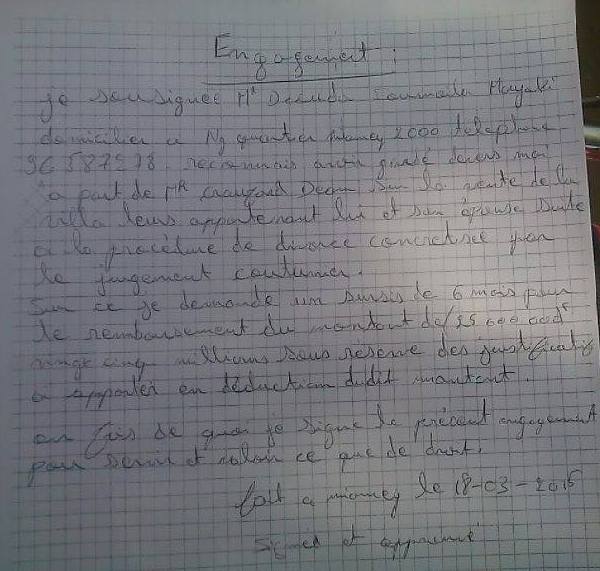 Engagement :
je sousignée Mr Daouda Mayaki
domicilier a Ny quartier Niamey 2000 telephone
96587578. reconnais avoir gardé devers moi
la part de Mr Crawford Dean sur la vente de la
villa leurs appartenant lui et son épouse suite
a la procédure de divorce concretisee par
le jungement coutumier.
Sur ce je demande un sursis de 6 mois pour
le remboursement du montant de
vingt cinq millions sous réserve des justificatifs
a apporter en déduction dudit montant.
en fois de quoi je signe le présent engagement
pour servir et valoir ce que de droit.
fait a niamey le 18-03-2015